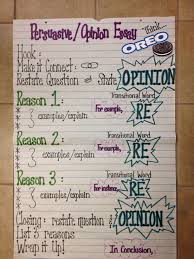 Persuasive/Opinion Essay
Think
OREO
Hook:
Make it Connect:
Restate Question & State
OPINION
Reason 1:
Transitional Word
For example,
examples/explain
RE
Reason 2:
Transitional Word
For example,
examples/explain
RE
Reason 3:
Transitional Word
For instance,
examples/explain
RE
Closing: restate question &
OPINION
List 3 reasons
Wrap it Up!
In Conclusion,